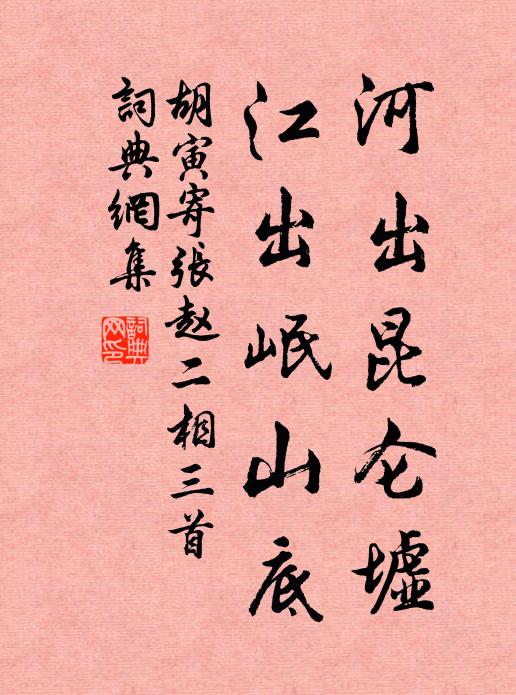 河出昆仑墟
江出岷山底
胡寅寄張赵二相三首
詞典網集
詞典網印